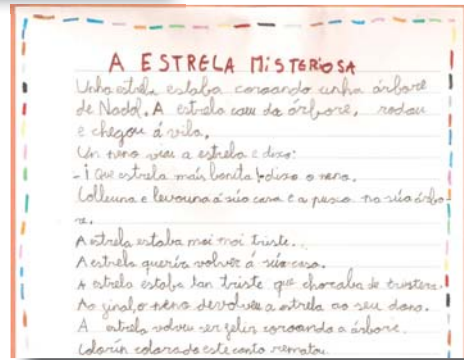 A ESTRELA MiSTERiOSA
Unha estrela estaba coroando unha árbore
de Nadal. A estrela caeu da árbore, rodou
e chegou á vila.
Un neno viu a estrela e dixo:
- ¡Que estrela máis bonita!-dixo o neno.
Colleuna e levouna á súa casa e a puxo na súa árbo-
re.
A estrela estaba moi moi triste...
A estrela quería volver á súa casa.
A estrela estaba tan triste que choraba de tristeza.
Ao final, o neno devolveu a estrela ao seu dono.
A estrela volveu ser feliz coroando a árbore.
Colorín colorado este conto rematou.